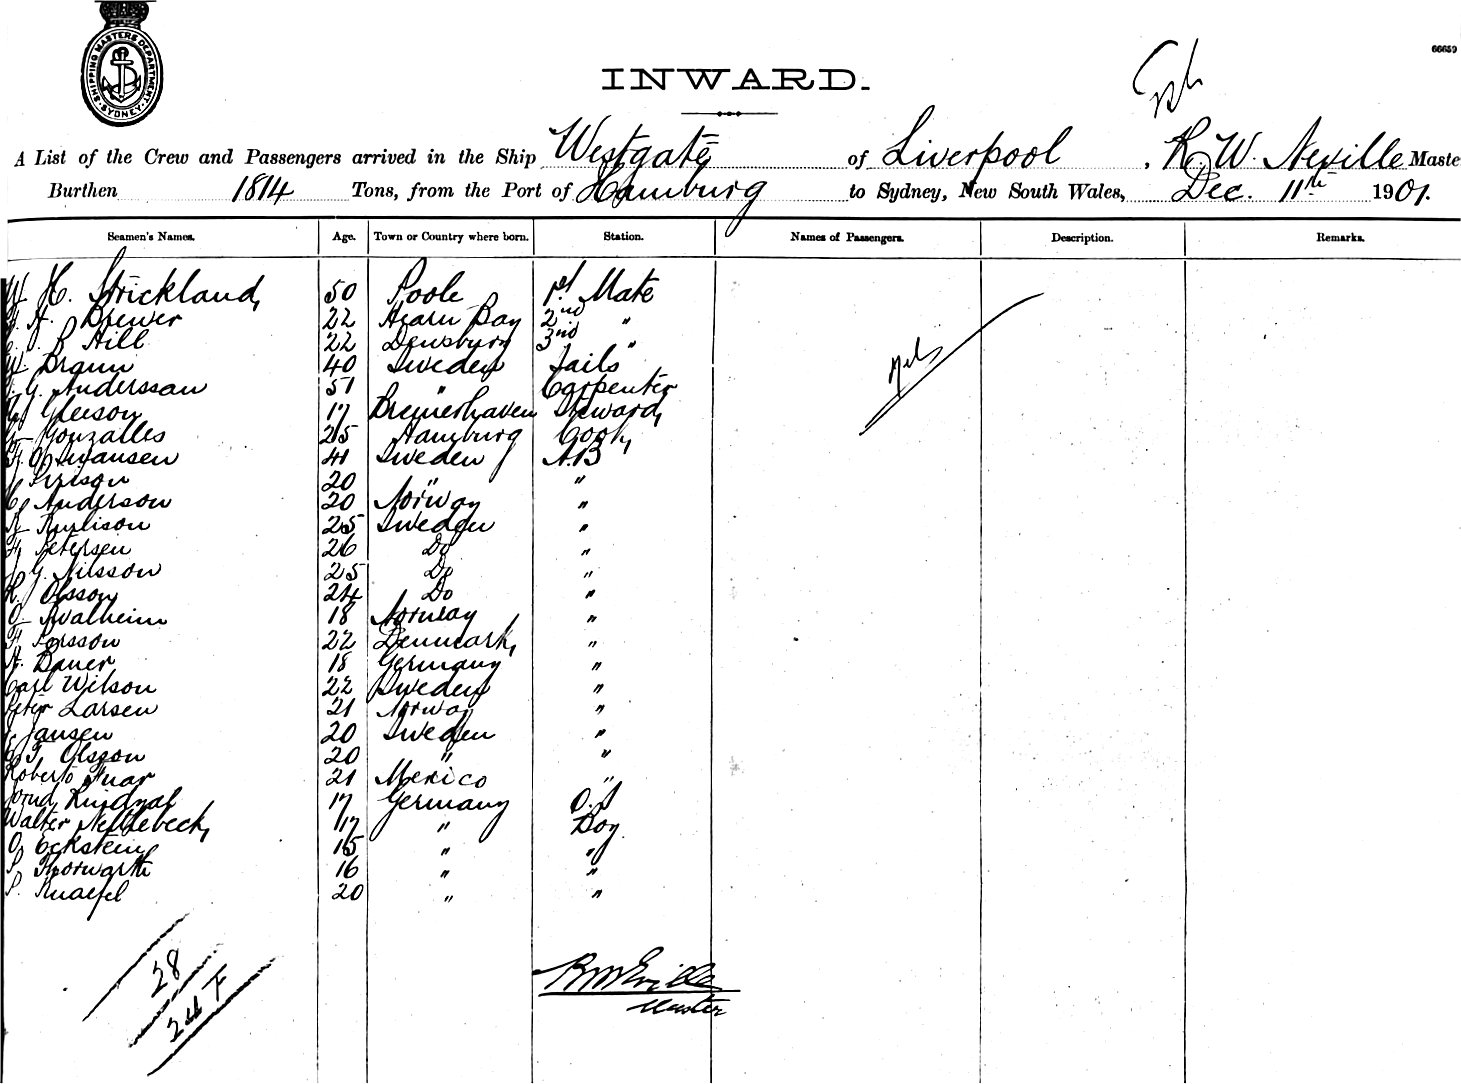 SHIPPING MASTERS DEPARTMENT
SYDNEY
66659
INWARD.
A List of the Crew and Passengers arrived in the Ship Westgate of Liverpool, R. W. Neville Maste
Burthen 1814 Tons, from the Port of Hamburg to Sydney, New South Wales, Dec. 11th 1901.
Seamen's Names. Age. Town or Country where born. Station. Names of Passengers. Description. Remarks.
W H. Strickland, 50 Poole 1st Mate
A. Brewer 22 Hearn Bay 2nd "
Hill 22 3rd "
W Braun 40 Sweden Sails
G. Anderssan 51 " Carpenter
Gleeson 17 Bremerhaven Steward,
Gonzalles 25 Hamburg Cook,
F. O. Swansen 41 Sweden A.B
20 " "
C Anderson 20 Norway "
25 Sweden "
Petersen 26 Do "
G. Nilsson 25 Do "
Olsson 24 Do "
O 18 Norway "
22 Denmark, "
A. Bauer 18 Germany "
Carl Wilson 22 Sweden "
Peter Larsen 21 Norway "
Jansen 20 Sweden "
Olsson 20 " "
Roberto 21 Mexico "
17 Germany O.S
Walter Nettebeck, 17 " Boy
O Eckstein 15 " "
P. Thorwarth 16 " "
P. Knaefel 20 " "
Nil
28
24 F
R W Neville
Master